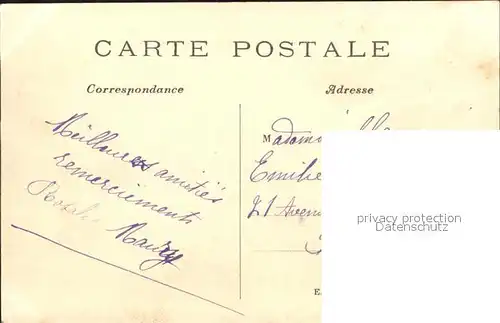 CARTE POSTALE
Correspondance
Adresse
Meilleures amitiés
remerciements
Mademoiselle
Emilie
21 Aven
privacy protection
Datenschutz
E.